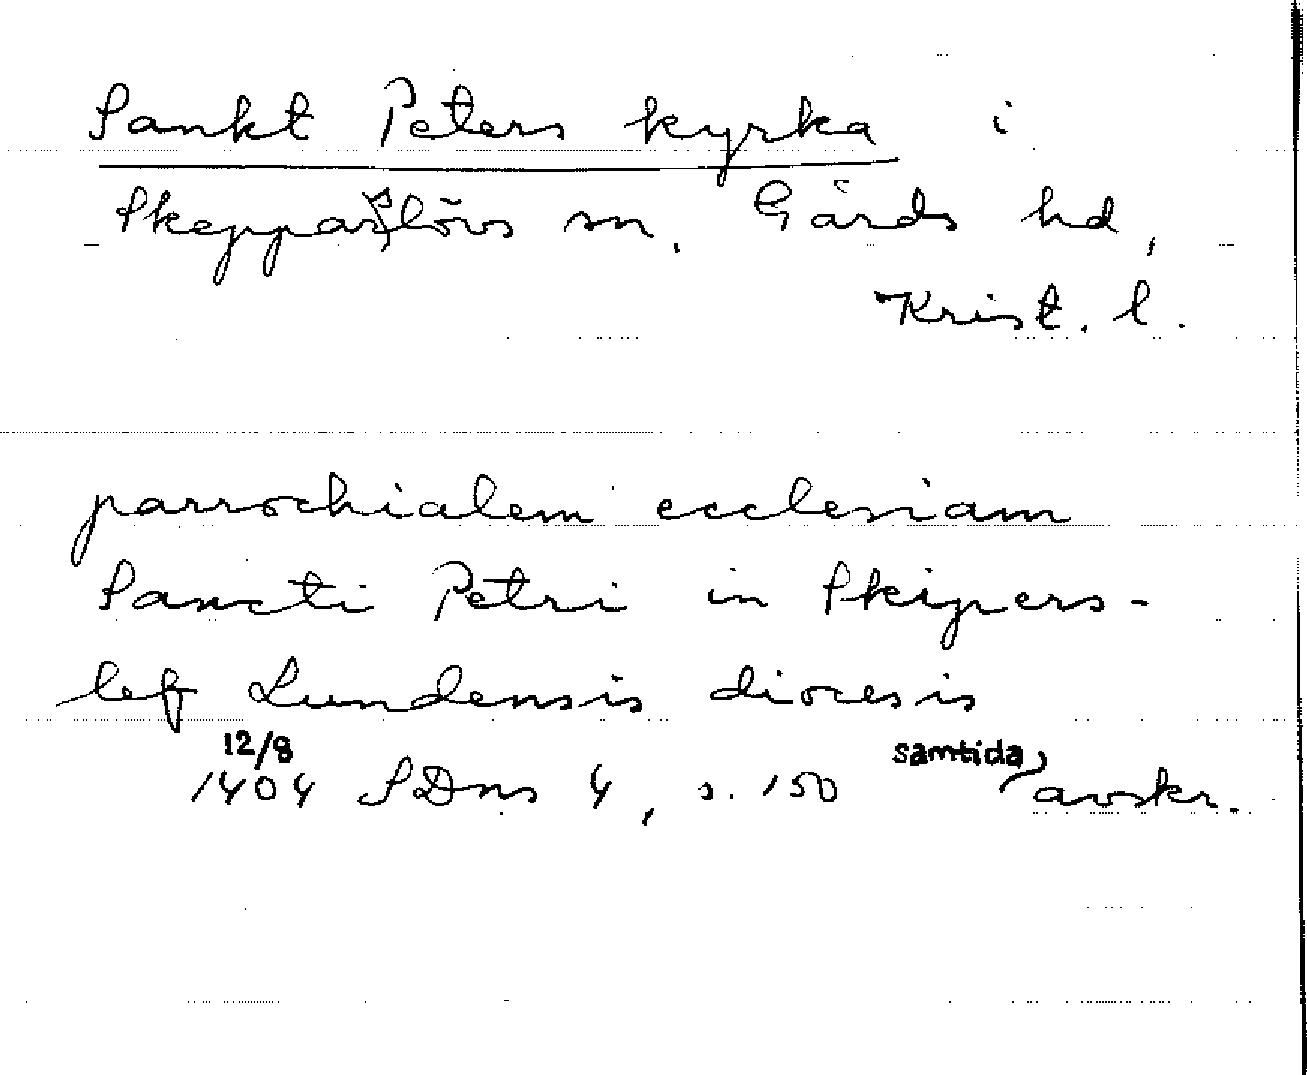 Sankt Peters kyrka i
Skepparslövs sn. Gärds hd,
Krist. l.
parrochialem ecclesiam
Sancti Petri in Skipers-
lef Lundensis diocesis
12/8 samtida
1404 SDns 4, s. 150 avskr.